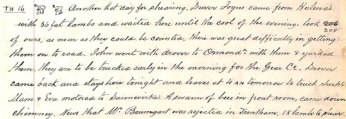 TH 16 Another hot day for shearing, Snow Foyns came from Helena's
with 36 fat lambs and waited here until the cool of the evening. took
of ours, as near as they could be counted, there was great difficulty in getting
them on to road. John went with drover to Ormond with them & yarded
them, they are to be trucked early in the morning for the Gear Co. drover
came back and stays here tonight and leaves at 4 am tomorrow to truck sheep.
Mam & I've motored to A swarm of bees in front room, came down
chimney. News that Mr Baumgart was rejected in Trentham, 18